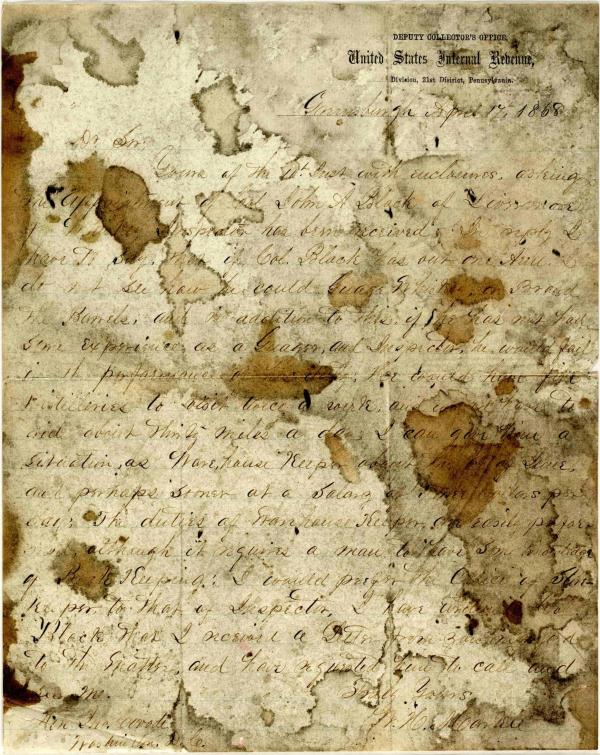 DEPUTY COLLECTOR'S OFFICE,
United States Internal Revenue,
Division, 21st District, Pennsylvania.
April 17, 1868
Dr Sir
Yours of the Inst with enclosures, asking
the appointment of Col John A Black of
Inspector has been received. In reply I
have to say, that if Col. Black has but one Arm I
do not see how he could Guage Whiskey or Brand
the Barrels, and in addition to this, if he has not had
some experience as a Guager and Inspector, he would fail
in the performance of his He would have five
Distilleries to visit twice a week and have to
ride about thirty miles a day. I can give him a
situation, as Ware house Keeper about the of June,
and perhaps sooner at a Salary of dollars per
day. The duties of Ware house Keeper are easily perfor
med although it requires a man to have some knowledge
of Book Keeping. I would prefer the Office of
Keeper to that of Inspector. I have
Black that I received a letter from you in
to the matter, and have requested him to call and
see me.
Yours
Hon
Washington D.C.